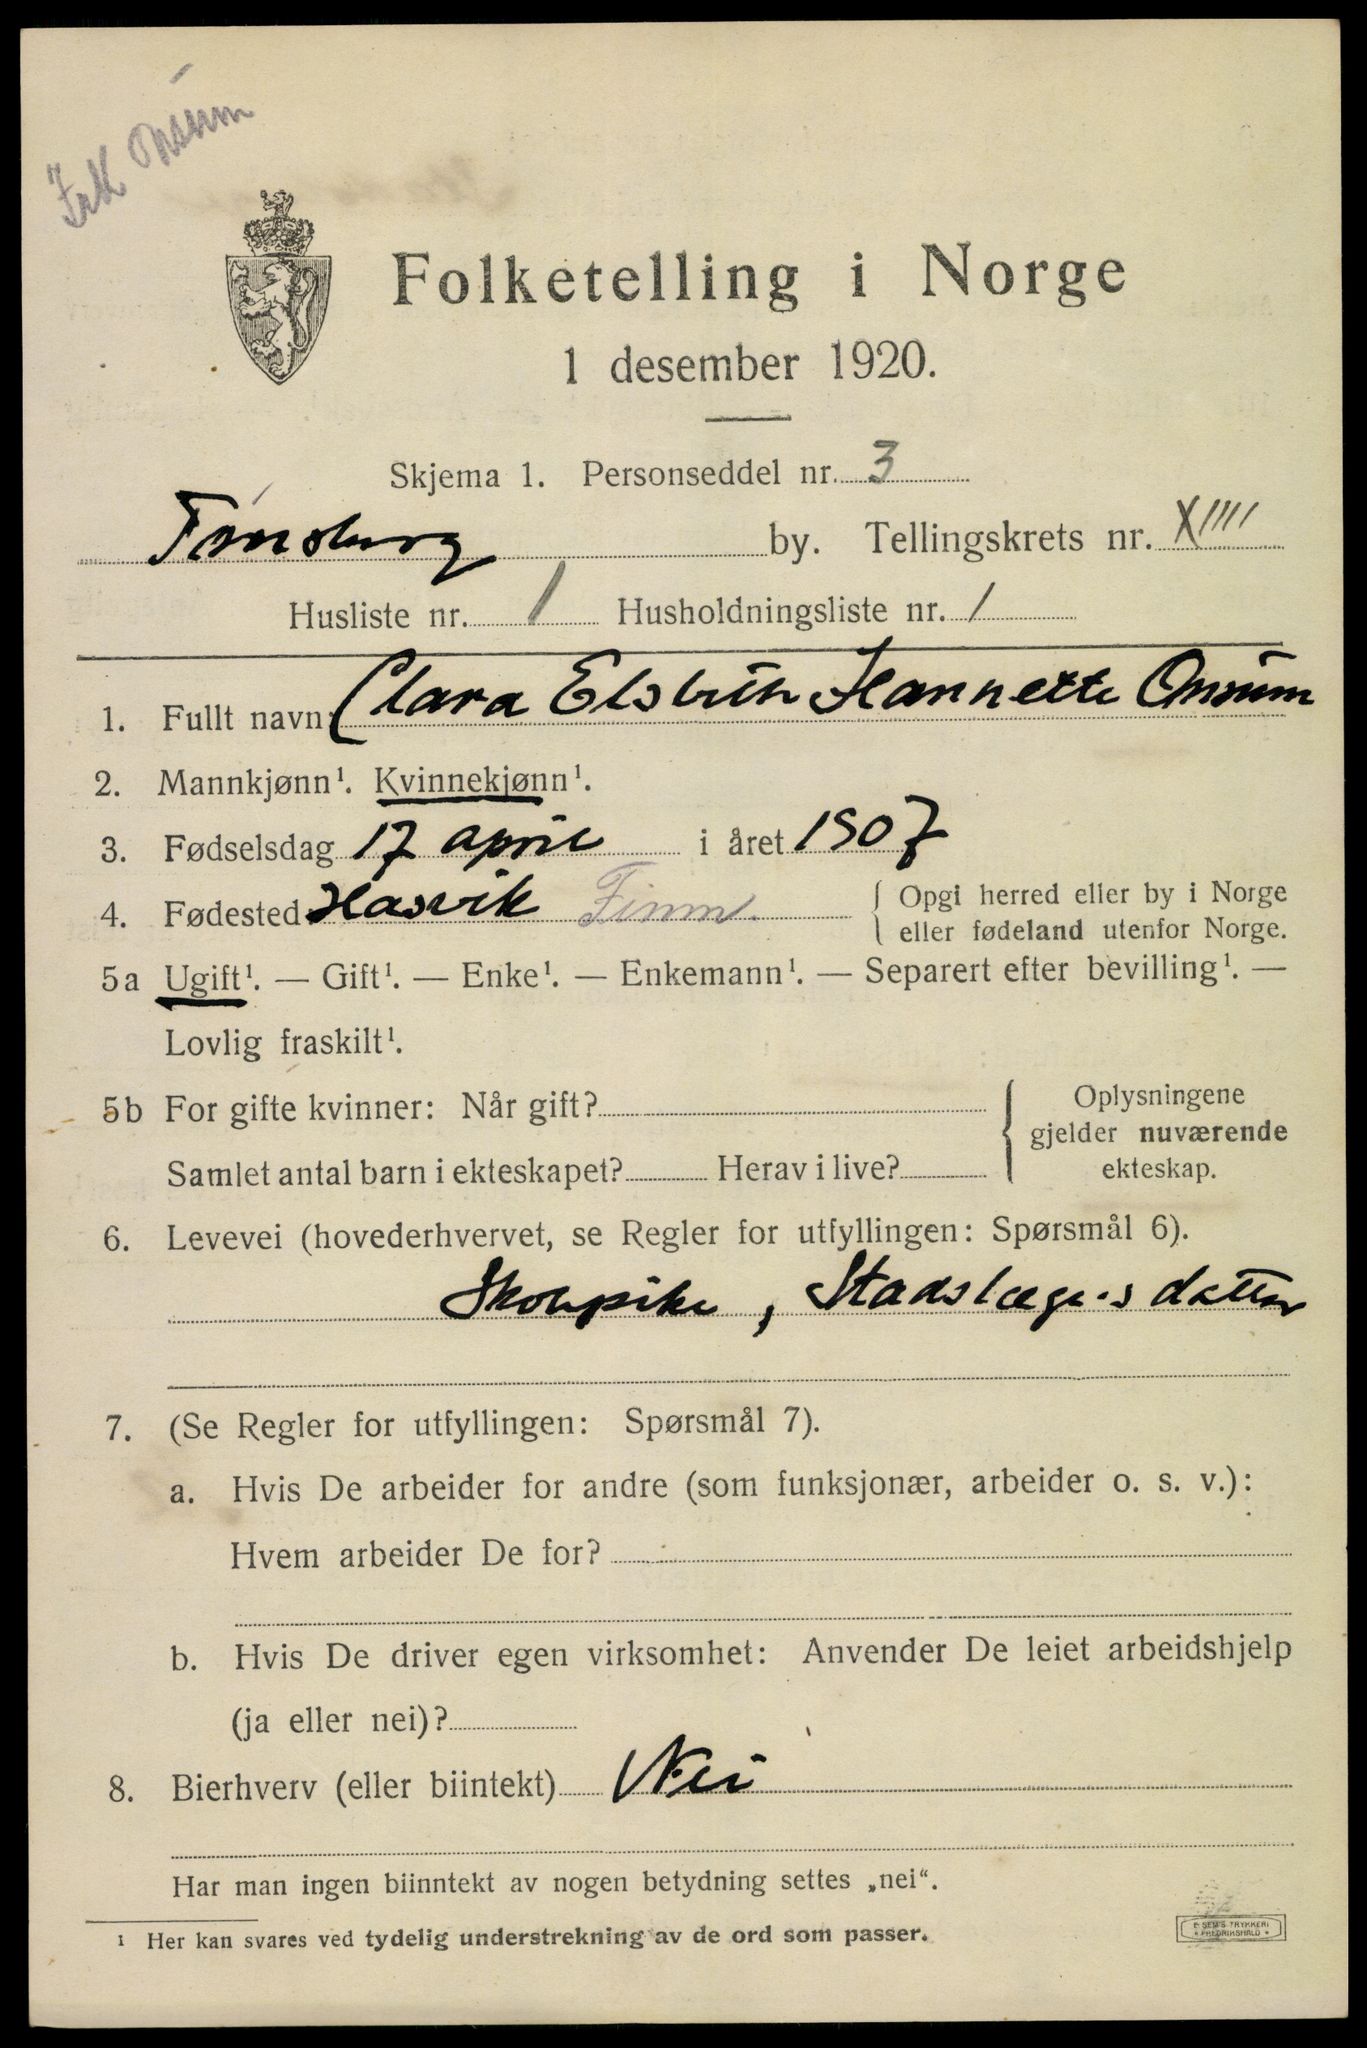 Frk Onsum
Folketelling i Norge
1 desember 1920.
Skjema 1. Personseddel nr. 3
Tønsberg by. Tellingskrets nr. XIIII
Husliste nr. 1 Husholdningsliste nr. 1
1. Fullt navn Clara Elsbeth Hannette Onsum
2. Mannkjønn¹. Kvinnekjønn¹.
3. Fødselsdag 17 april i året 1907
4. Fødested Hasvik Finnm. { Opgi herred eller by i Norge
eller fødeland utenfor Norge.
5a Ugift¹. — Gift¹. — Enke¹. — Enkemann¹. — Separert efter bevilling¹. —
Lovlig fraskilt¹.
5b For gifte kvinner: Når gift? { Oplysningene
gjelder nuværende
Samlet antal barn i ekteskapet? Herav i live? ekteskap.
6. Levevei (hovederhvervet, se Regler for utfyllingen: Spørsmål 6).
Skolepike, Stadslæges datter
7. (Se Regler for utfyllingen: Spørsmål 7).
a. Hvis De arbeider for andre (som funksjonær, arbeider o. s. v.):
Hvem arbeider De for?
b. Hvis De driver egen virksomhet: Anvender De leiet arbeidshjelp
(ja eller nei)?
8. Bierhverv (eller biintekt) Nei
Har man ingen biinntekt av nogen betydning settes „nei“.
¹ Her kan svares ved tydelig understrekning av de ord som passer.
E SEM'S TRYKKERI
* FREDRIKSHALD *